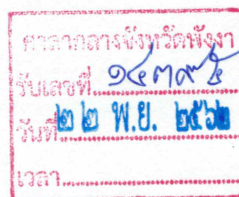 ศาลากลางจังหวัดพังงา
รับเลขที่
วันที่ ๒๒ พ.ย. ๒๕๖๒
เวลา